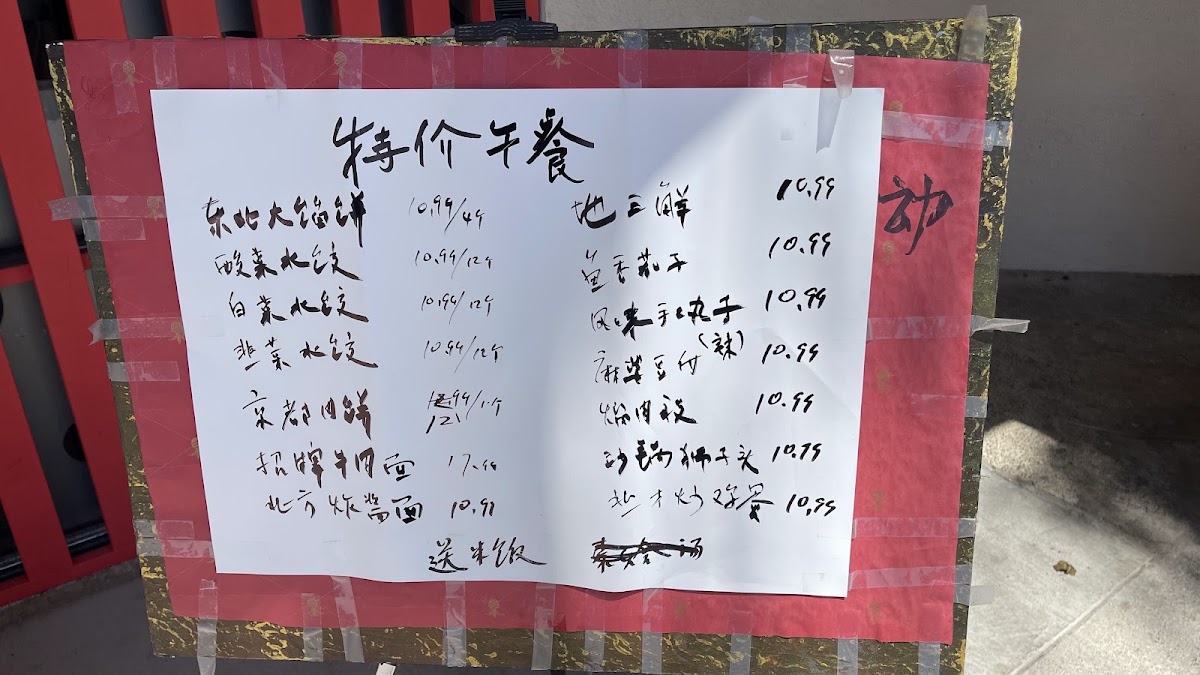 特价午餐
东北大馅饼 10.99/4个
酸菜水饺 10.99/12个
白菜水饺 10.99/12个
韭菜水饺 10.99/12个
京都肉饼 12.99/1个
招牌牛肉面 17.99
北方炸酱面 10.99
送米饭
地三鲜 10.99
鱼香茄子 10.99
风味干丸子 10.99
麻婆豆付(辣) 10.99
焰肉段 10.99
沙锅狮子头 10.99
韭才炒鸡蛋 10.99